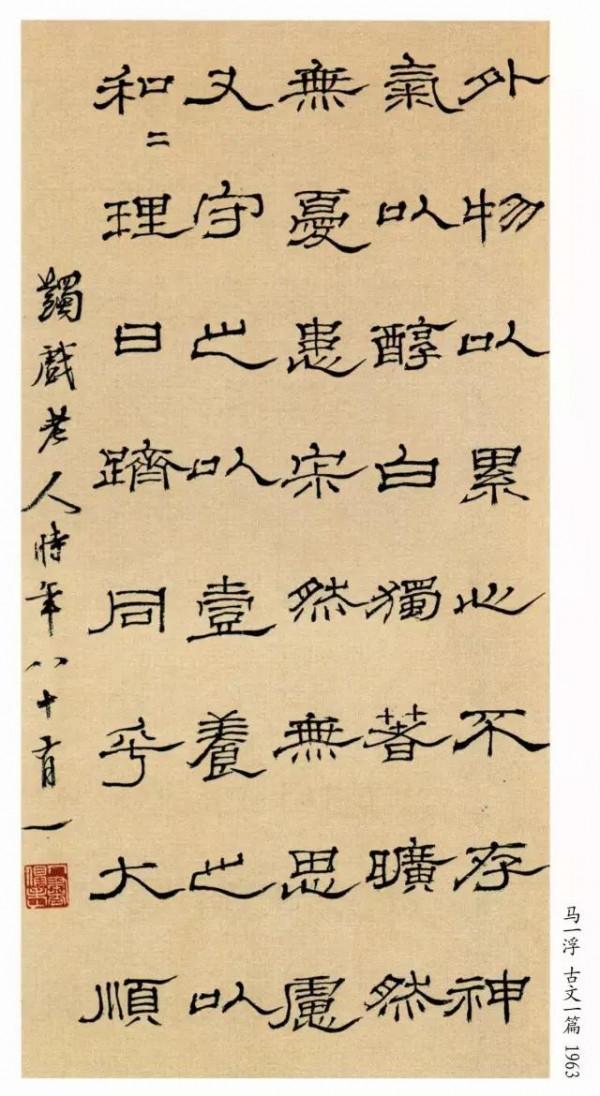 外物以累心不存神
氣以醇白獨著曠然
無憂患寂然無思慮
又守之以壹養之以
和〻理日躋同乎大順
蠲戲老人時年八十有一
马一浮 古文一篇 1963